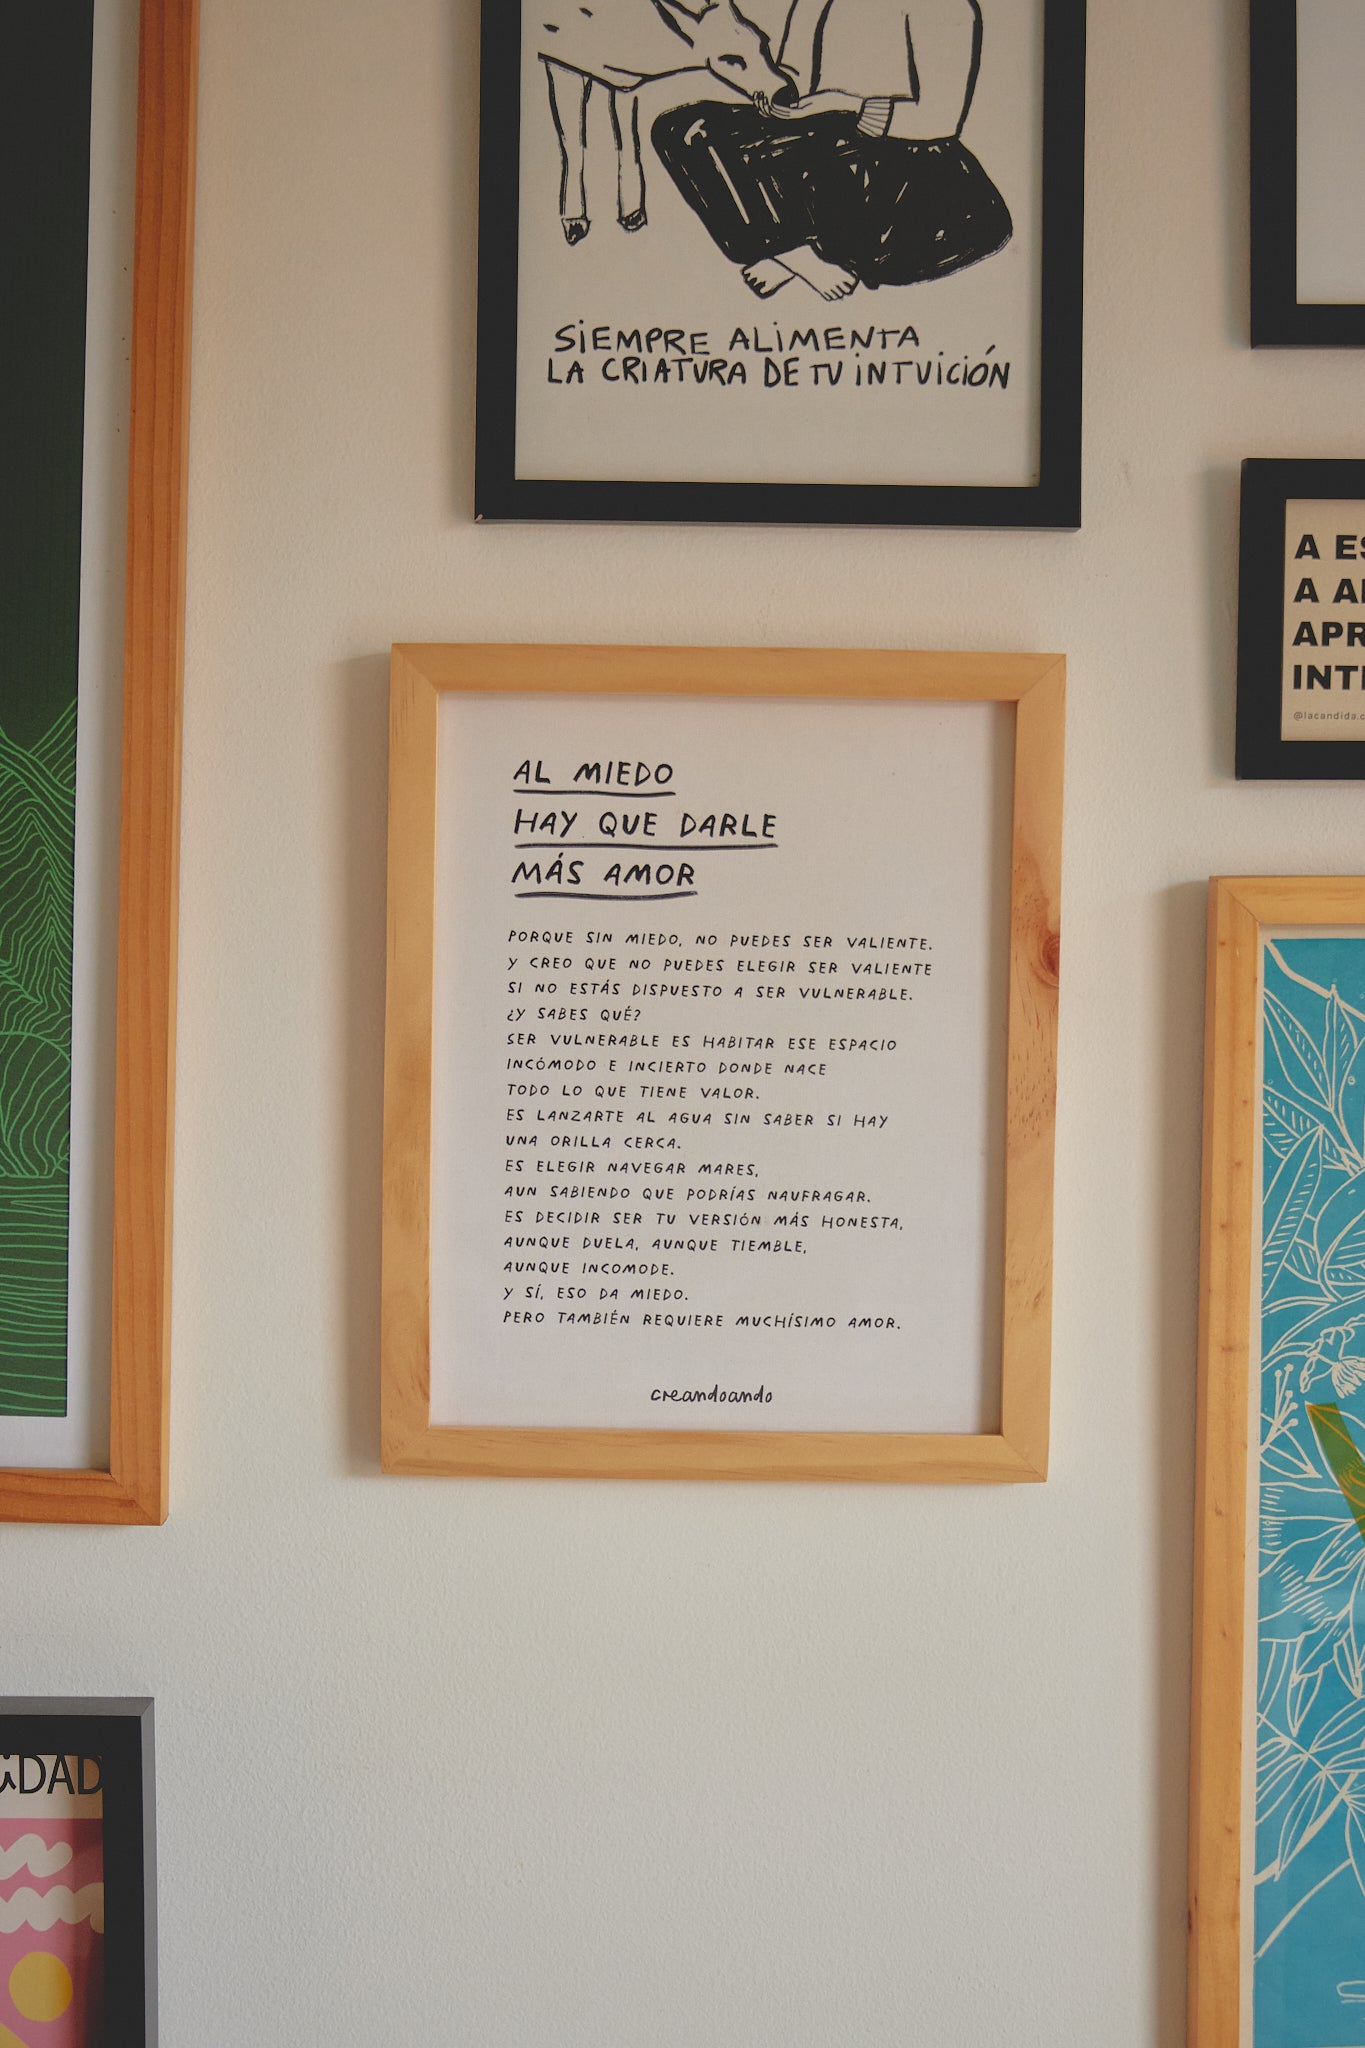 SIEMPRE ALIMENTA
LA CRIATURA DE TU INTUICIÓN
A
A
@lacandida
AL MIEDO
HAY QUE DARLE
MÁS AMOR
PORQUE SIN MIEDO, NO PUEDES SER VALIENTE.
Y CREO QUE NO PUEDES ELEGIR SER VALIENTE
SI NO ESTÁS DISPUESTO A SER VULNERABLE.
¿Y SABES QUÉ?
SER VULNERABLE ES HABITAR ESE ESPACIO
INCÓMODO E INCIERTO DONDE NACE
TODO LO QUE TIENE VALOR.
ES LANZARTE AL AGUA SIN SABER SI HAY
UNA ORILLA CERCA.
ES ELEGIR NAVEGAR MARES,
AUN SABIENDO QUE PODRÍAS NAUFRAGAR.
ES DECIDIR SER TU VERSIÓN MÁS HONESTA,
AUNQUE DUELA, AUNQUE TIEMBLE,
AUNQUE INCOMODE.
Y SÍ, ESO DA MIEDO.
PERO TAMBIÉN REQUIERE MUCHÍSIMO AMOR.
creandoando